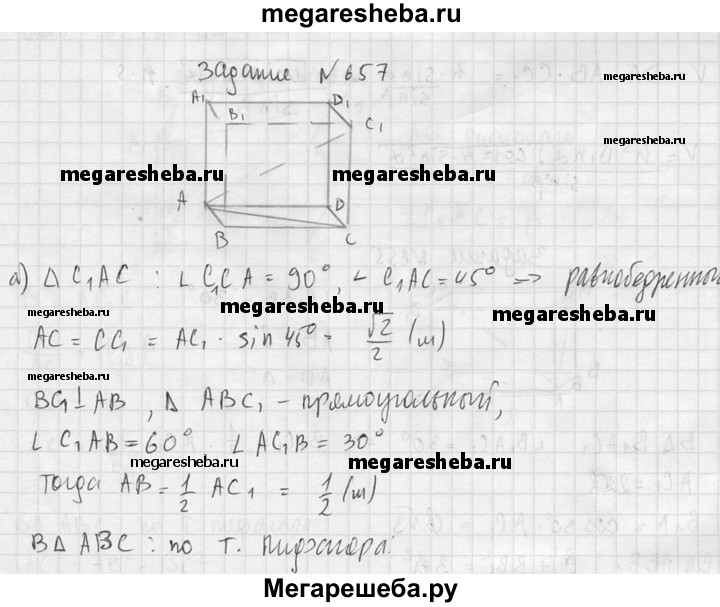 megaresheba.ru
Задание №657
A₁ D₁
B₁ C₁
megaresheba.ru
megaresheba.ru
megaresheba.ru megaresheba.ru
A D
B C
а) Δ C₁AC : ∟ C₁CA = 90°, ∟ C₁AC = 45° => равнобедренный
megaresheba.ru megaresheba.ru
AC = CC₁ = AC₁ · sin 45° = √2/2 (м)
megaresheba.ru
BC₁ ⊥ AB , Δ ABC₁ – прямоугольный,
∟ C₁AB = 60° ∟ AC₁B = 30°
megaresheba.ru megaresheba.ru
Тогда AB = 1/2 AC₁ = 1/2 (м)
В Δ ABC : по т. Пифагора:
Мегарешеба.ру